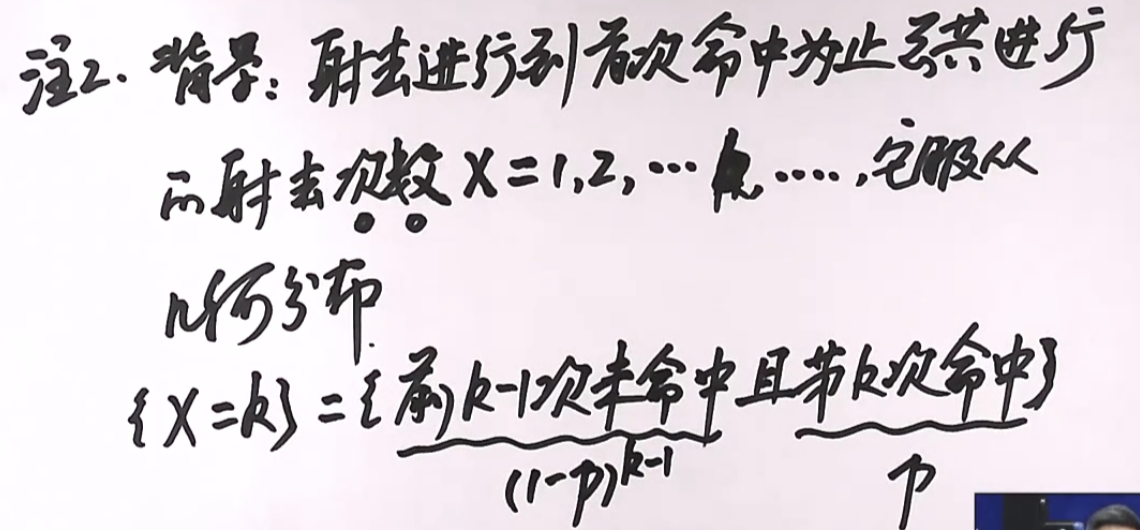 注2. 背景: 射击进行到首次命中为止总共进行
的射击次数 X=1,2,…k,…., 它服从
几何分布.
{X=k}={前k-1次未命中且第k次命中}
(1-p)^{k-1} p